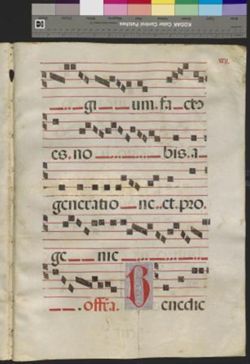 KODAK Color Control Patches
gi um. fa ctꝰ
es. no bis. a
generatio ne. et. pro.
ge nie
. offa. B enedic